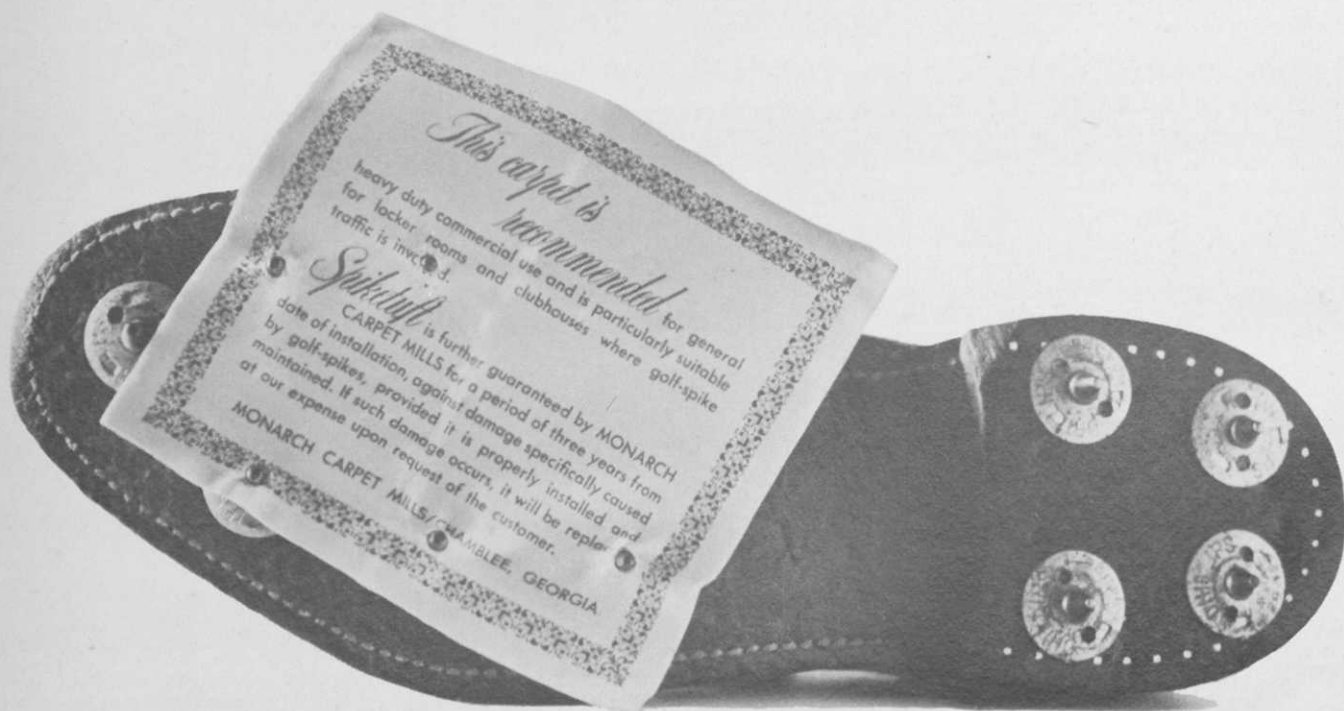 This carpet is
recommended for general
heavy duty commercial use and is particularly suitable
for locker rooms and clubhouses where golf-spike
traffic is
Spiketuft is further guaranteed by MONARCH
CARPET MILLS for a period of three years from
date of installation, against damage specifically caused
by golf-spikes, provided it is properly installed and
maintained. If such damage occurs, it will be
at our expense upon request of the customer.
MONARCH CARPET MILLS/CHAMBLEE, GEORGIA